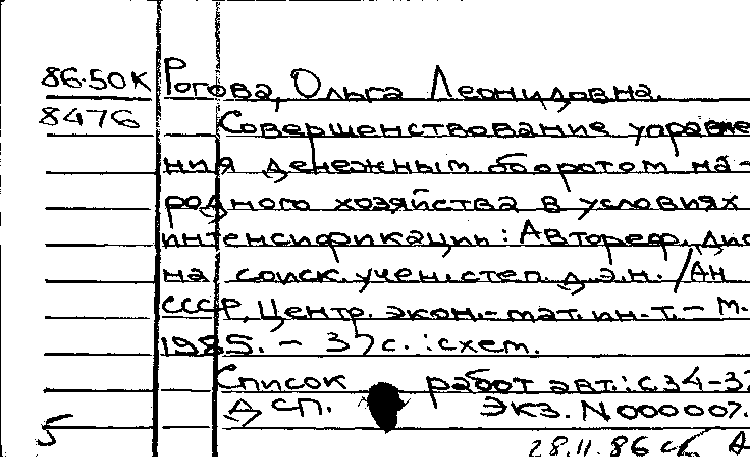 86-50К Рогова, Ольга Леонидовна.
8476 Совершенствование управле
ния денежным оборотом на-
родного хозяйства в условиях
интенсификации: Автореф. дис
на соиск. учен. степ. д.э.н. /Ан
СССР, Центр. экон.-мат. ин-т. - М.
1985. - 37 с. : схем.
Список работ авт.: с. 34-37
Дсп. Экз. N 000007.
5 28.11.86